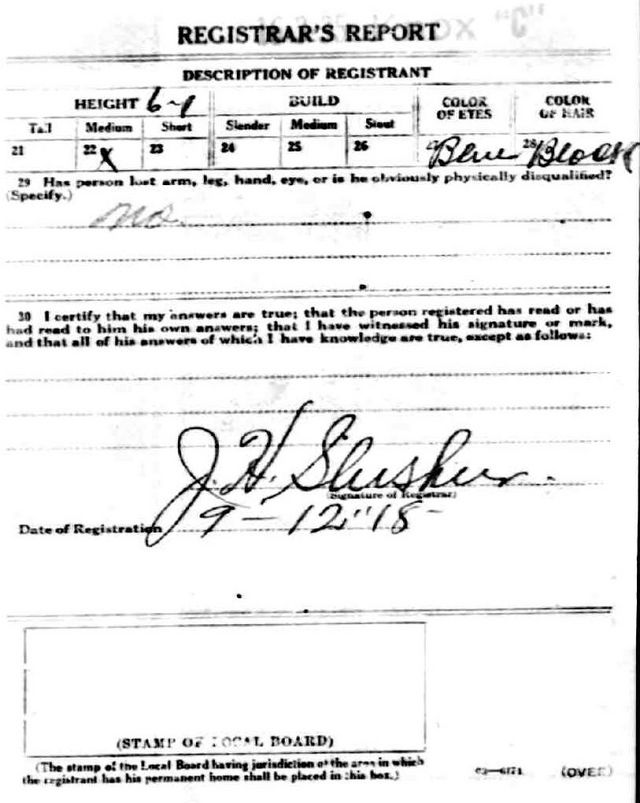 "C"
REGISTRAR'S REPORT
DESCRIPTION OF REGISTRANT
HEIGHT 6-1 BUILD COLOR OF EYES COLOR OF HAIR
Tall Medium Short Slender Medium Stout
21 22 X 23 24 25 26 Blue 28 Black
29 Has person lost arm, leg, hand, eye, or is he obviously physically disqualified?
(Specify.)
no.
30 I certify that my answers are true; that the person registered has read or has
had read to him his own answers; that I have witnessed his signature or mark,
and that all of his answers of which I have knowledge are true, except as follows:
J. H. Slusher.
(Signature of Registrar)
Date of Registration 9-12"18
(STAMP OF LOCAL BOARD)
(The stamp of the Local Board having jurisdiction of the area in which
the registrant has his permanent home shall be placed in this box.)
03—6171 (OVER)